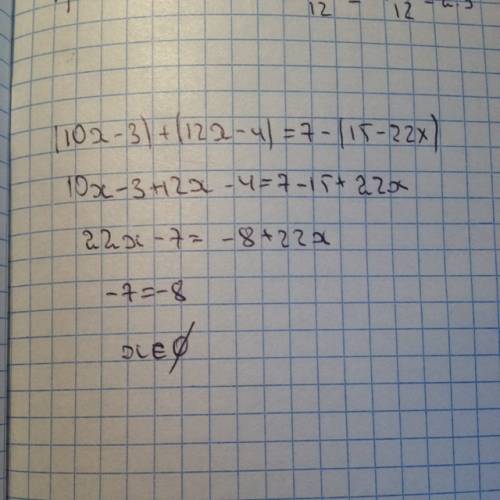 12 - 12
(10x-3)+(12x-4)=7-(15-22x)
10x-3+12x-4=7-15+22x
22x-7=-8+22x
-7=-8
x∈∅